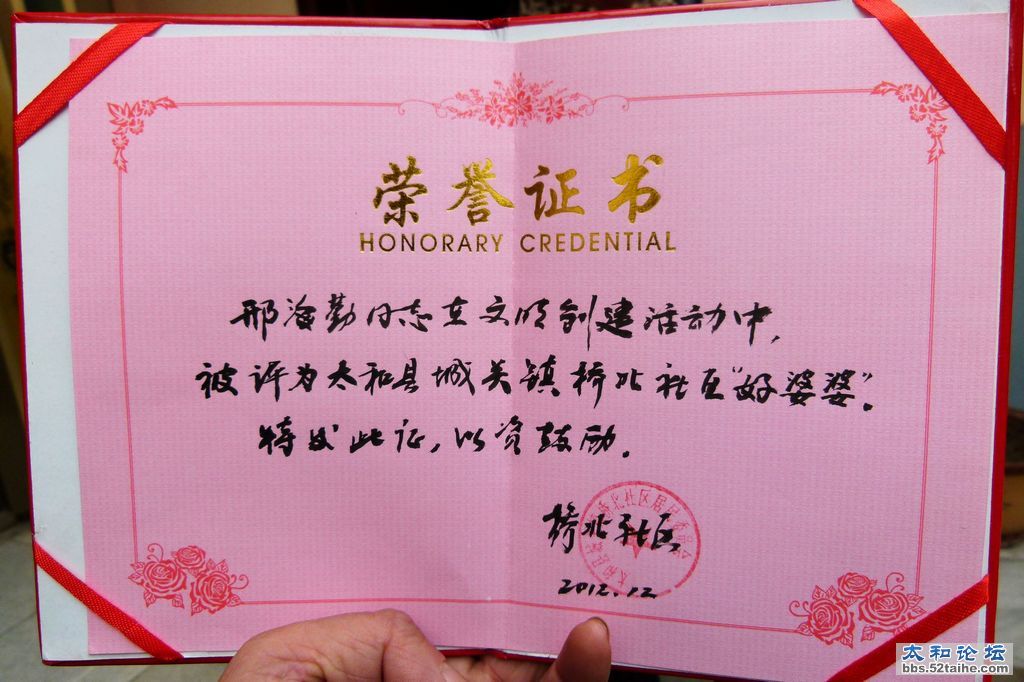 荣誉证书
HONORARY CREDENTIAL
邢海勤同志在文明创建活动中,
被评为太和县城关镇桥北社区“好婆婆”.
特发此证,以资鼓励.
桥北社区
2012.12
太和论坛
bbs.52taihe.com